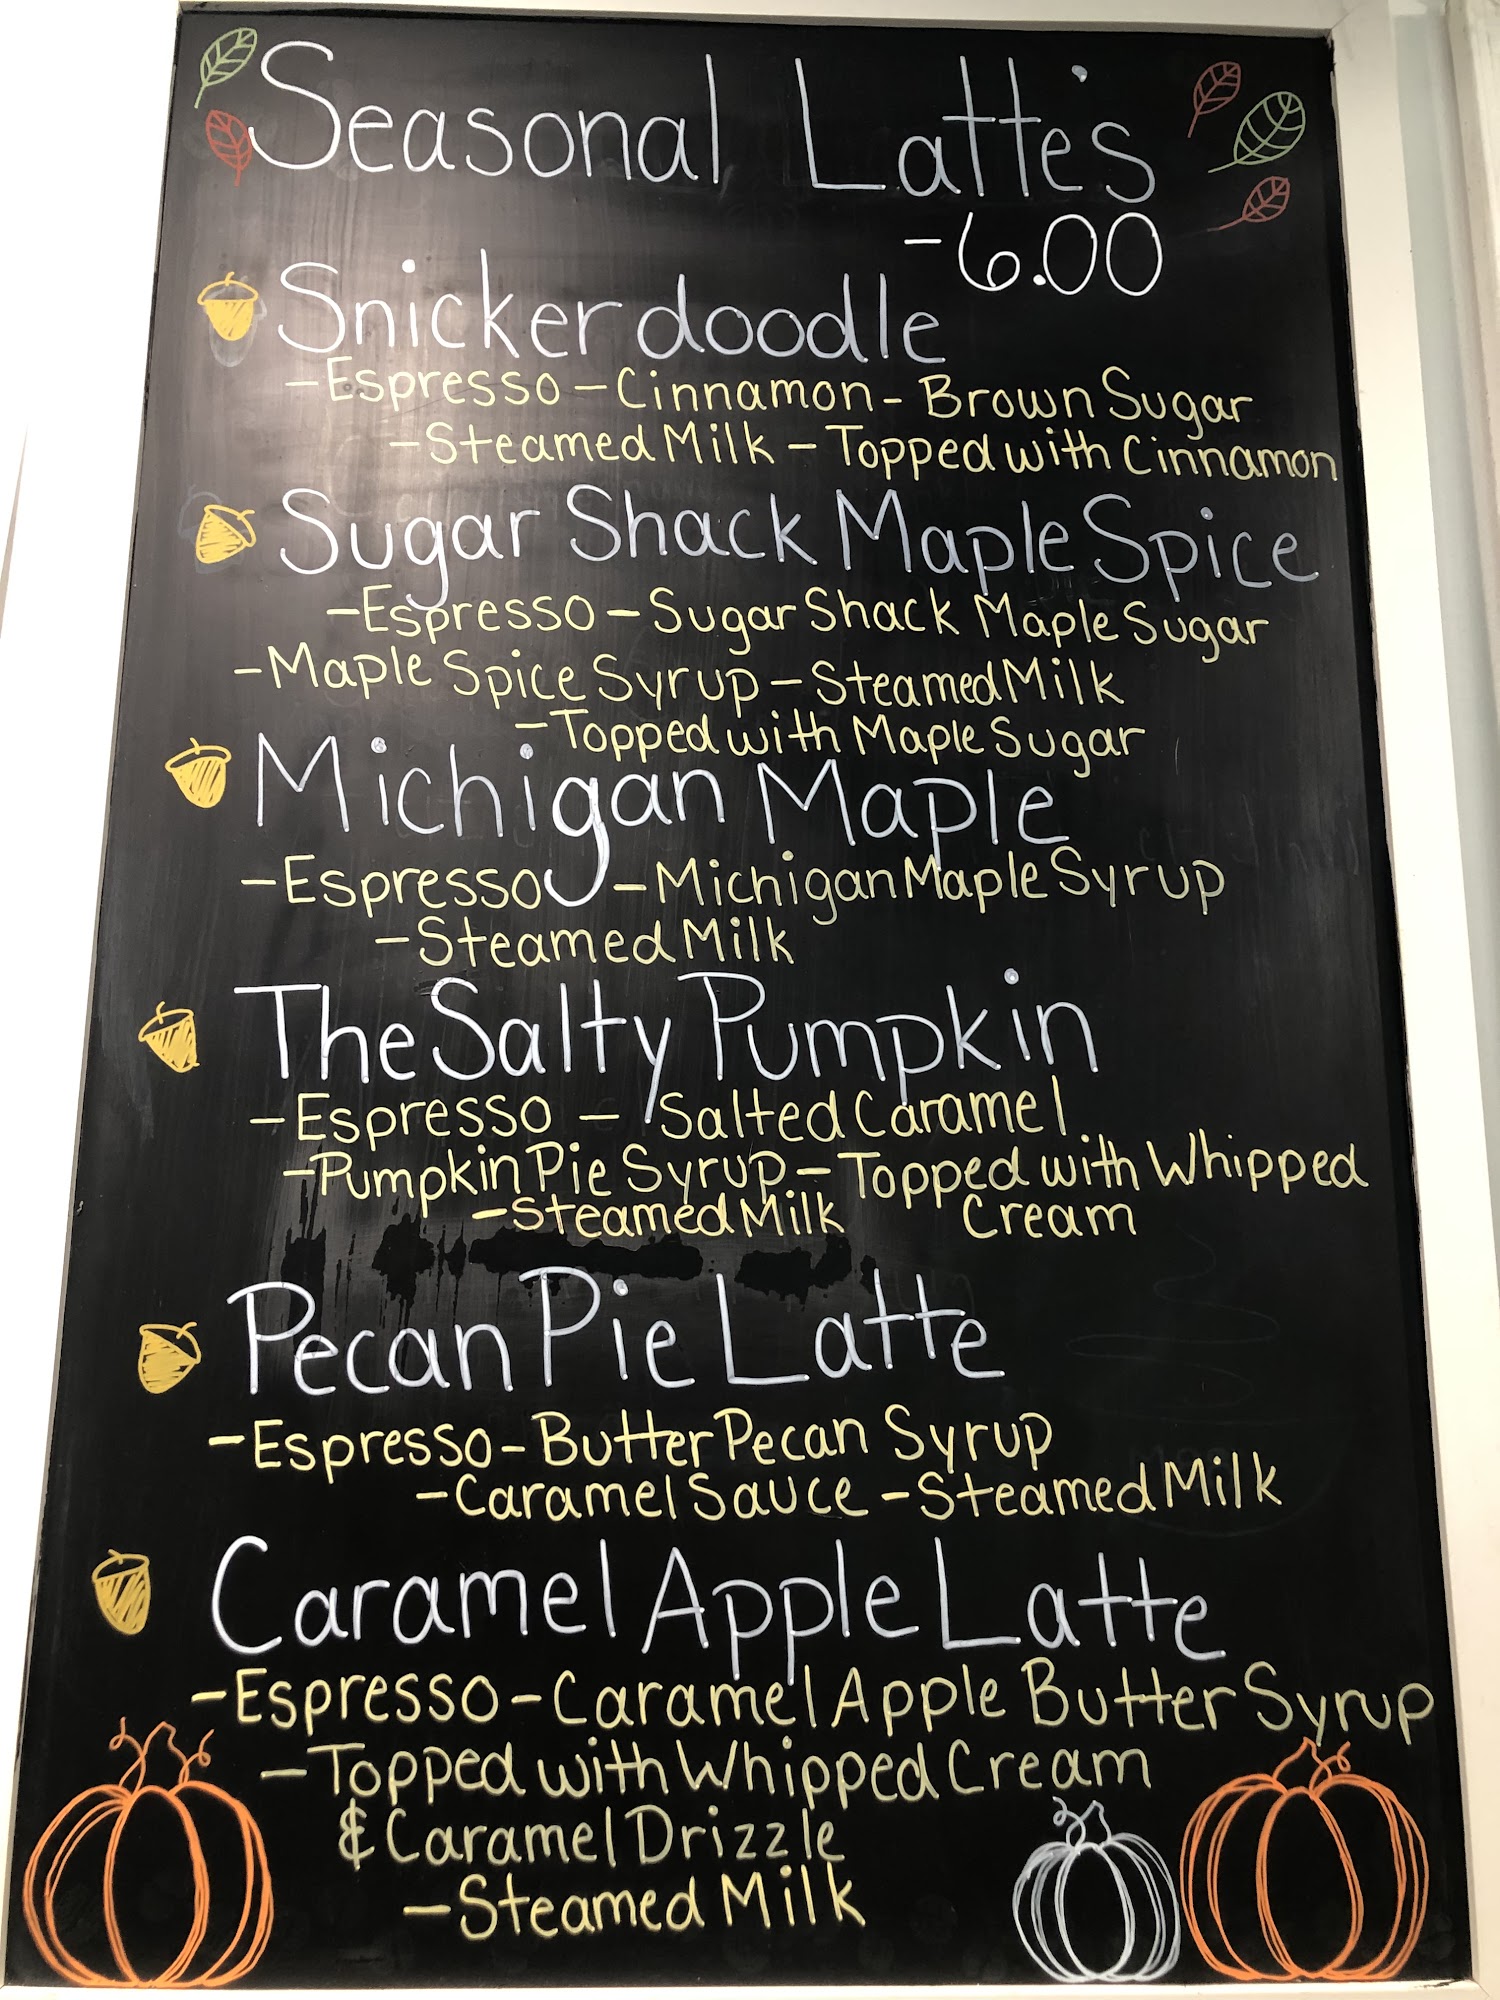 Seasonal Latte's
-6.00
Snickerdoodle
-Espresso-Cinnamon-Brown Sugar
-Steamed Milk-Topped with Cinnamon
Sugar Shack Maple Spice
-Espresso-Sugar Shack Maple Sugar
-Maple Spice Syrup-Steamed Milk
-Topped with Maple Sugar
Michigan Maple
-Espresso -Michigan Maple Syrup
-Steamed Milk
The Salty Pumpkin
-Espresso - Salted Caramel
-Pumpkin Pie Syrup-Topped with Whipped
-Steamed Milk Cream
Pecan Pie Latte
-Espresso-Butter Pecan Syrup
-Caramel Sauce-Steamed Milk
Caramel Apple Latte
-Espresso-Caramel Apple Butter Syrup
-Topped with Whipped Cream
& Caramel Drizzle
-Steamed Milk